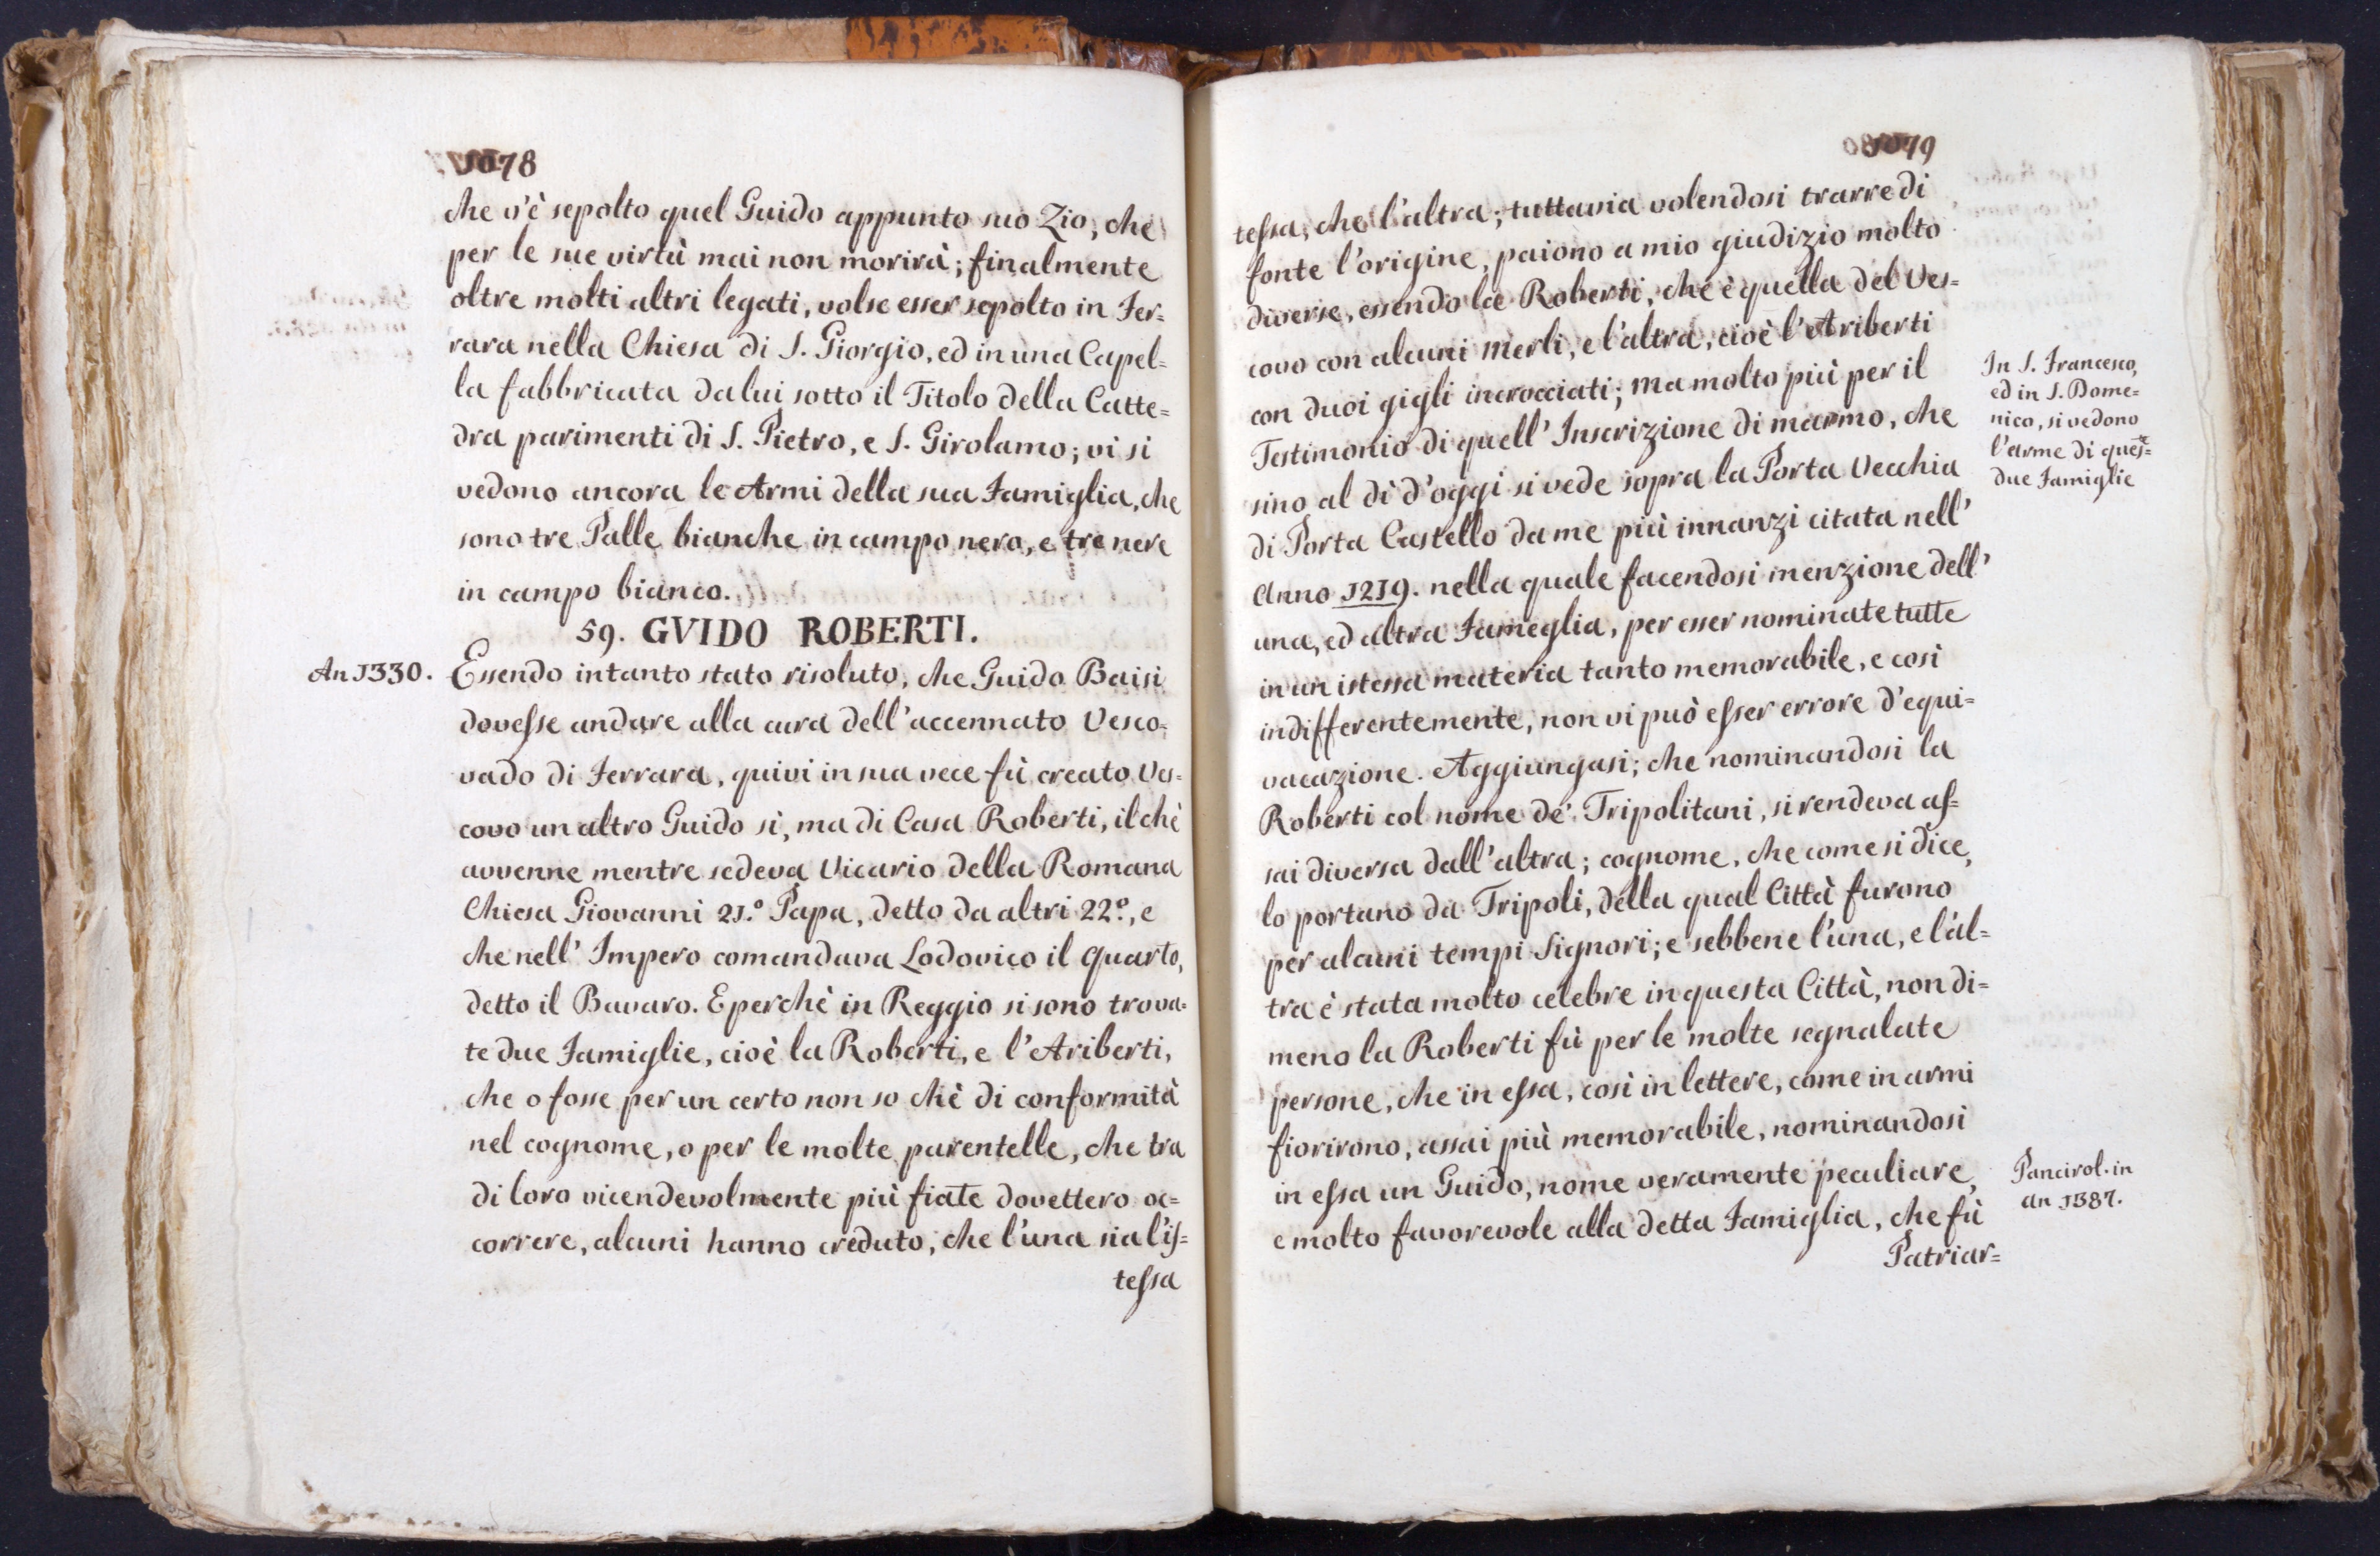 1078
che v'è sepolto quel Guido appunto suo Zio, che
per le sue virtù mai non morirà; finalmente
oltre molti altri legati, volse esser sepolto in Fer=
rara nella Chiesa di S. Giorgio, ed in una Capel=
la fabbricata da lui sotto il Titolo della Catte=
dra parimenti di S. Pietro, e S. Girolamo; vi si
vedono ancora le Armi della sua Famiglia, che
sono tre Palle bianche in campo nero, e tre nere
in campo bianco.
59. GVIDO ROBERTI.
An 1330.
Essendo intanto stato risoluto, che Guido Baisi
dovesse andare alla cura dell'accennato Vesco=
vado di Ferrara, quivi in sua vece fù creato Ves=
covo un altro Guido sì, ma di Casa Roberti, il chè
avvenne mentre sedeva Vicario della Romana
Chiesa Giovanni 21.º Papa, detto da altri 22º., e
che nell' Impero comandava Lodovico il Quarto,
detto il Bavaro. E perchè in Reggio si sono trova=
te due Famiglie, cioè la Roberti, e l'Ariberti,
che o fosse per un certo non so chè di conformità
nel cognome, o per le molte parentelle, che tra
di loro vicendevolmente più fiate dovettero oc=
correre, alcuni hanno creduto, che l'una sia l'is=
tessa
1079
tessa, che l'altra; tuttavia volendosi trarre di
fonte l'origine, paiono a mio giudizio molto
diverse, essendo la Roberti, che è quella del Ves=
covo con alcuni Merli, e l'altra, cioè l'Ariberti
con duoi gigli incrocciati; Ma molto più per il
Testimonio di quell' Inscrizione di marmo, che
sino al dì d'oggi si vede sopra la Porta Vecchia
di Porta Castello da me più innanzi citata nell'
Anno 1219. nella quale facendosi menzione dell'
una, ed altra Fameglia, per esser nominate tutte
in un istessa materia tanto memorabile, e così
indifferentemente, non vi può esser errore d'equi=
vacazione. Aggiungasi; che nominandosi la
Roberti col nome de' Tripolitani, si rendeva as=
sai diversa dall'altra; cognome, che come si dice,
lo portano da Tripoli, della qual Città furono
per alcuni tempi Signori; e sebbene l'una, e l'al=
tra è stata molto celebre in questa Città, non di=
meno la Roberti fù per le molte segnalate
persone, che in essa, così in lettere, come in armi
fiorirono, assai più memorabile, nominandosi
in essa un Guido, nome veramente peculiare,
e molto favorevole alla detta Famiglia, che fù
Patriar=
In S. Francesco,
ed in S. Dome=
nico, si vedono
l'arme di ques=
due Famiglie
Pancirol. in
an 1387.